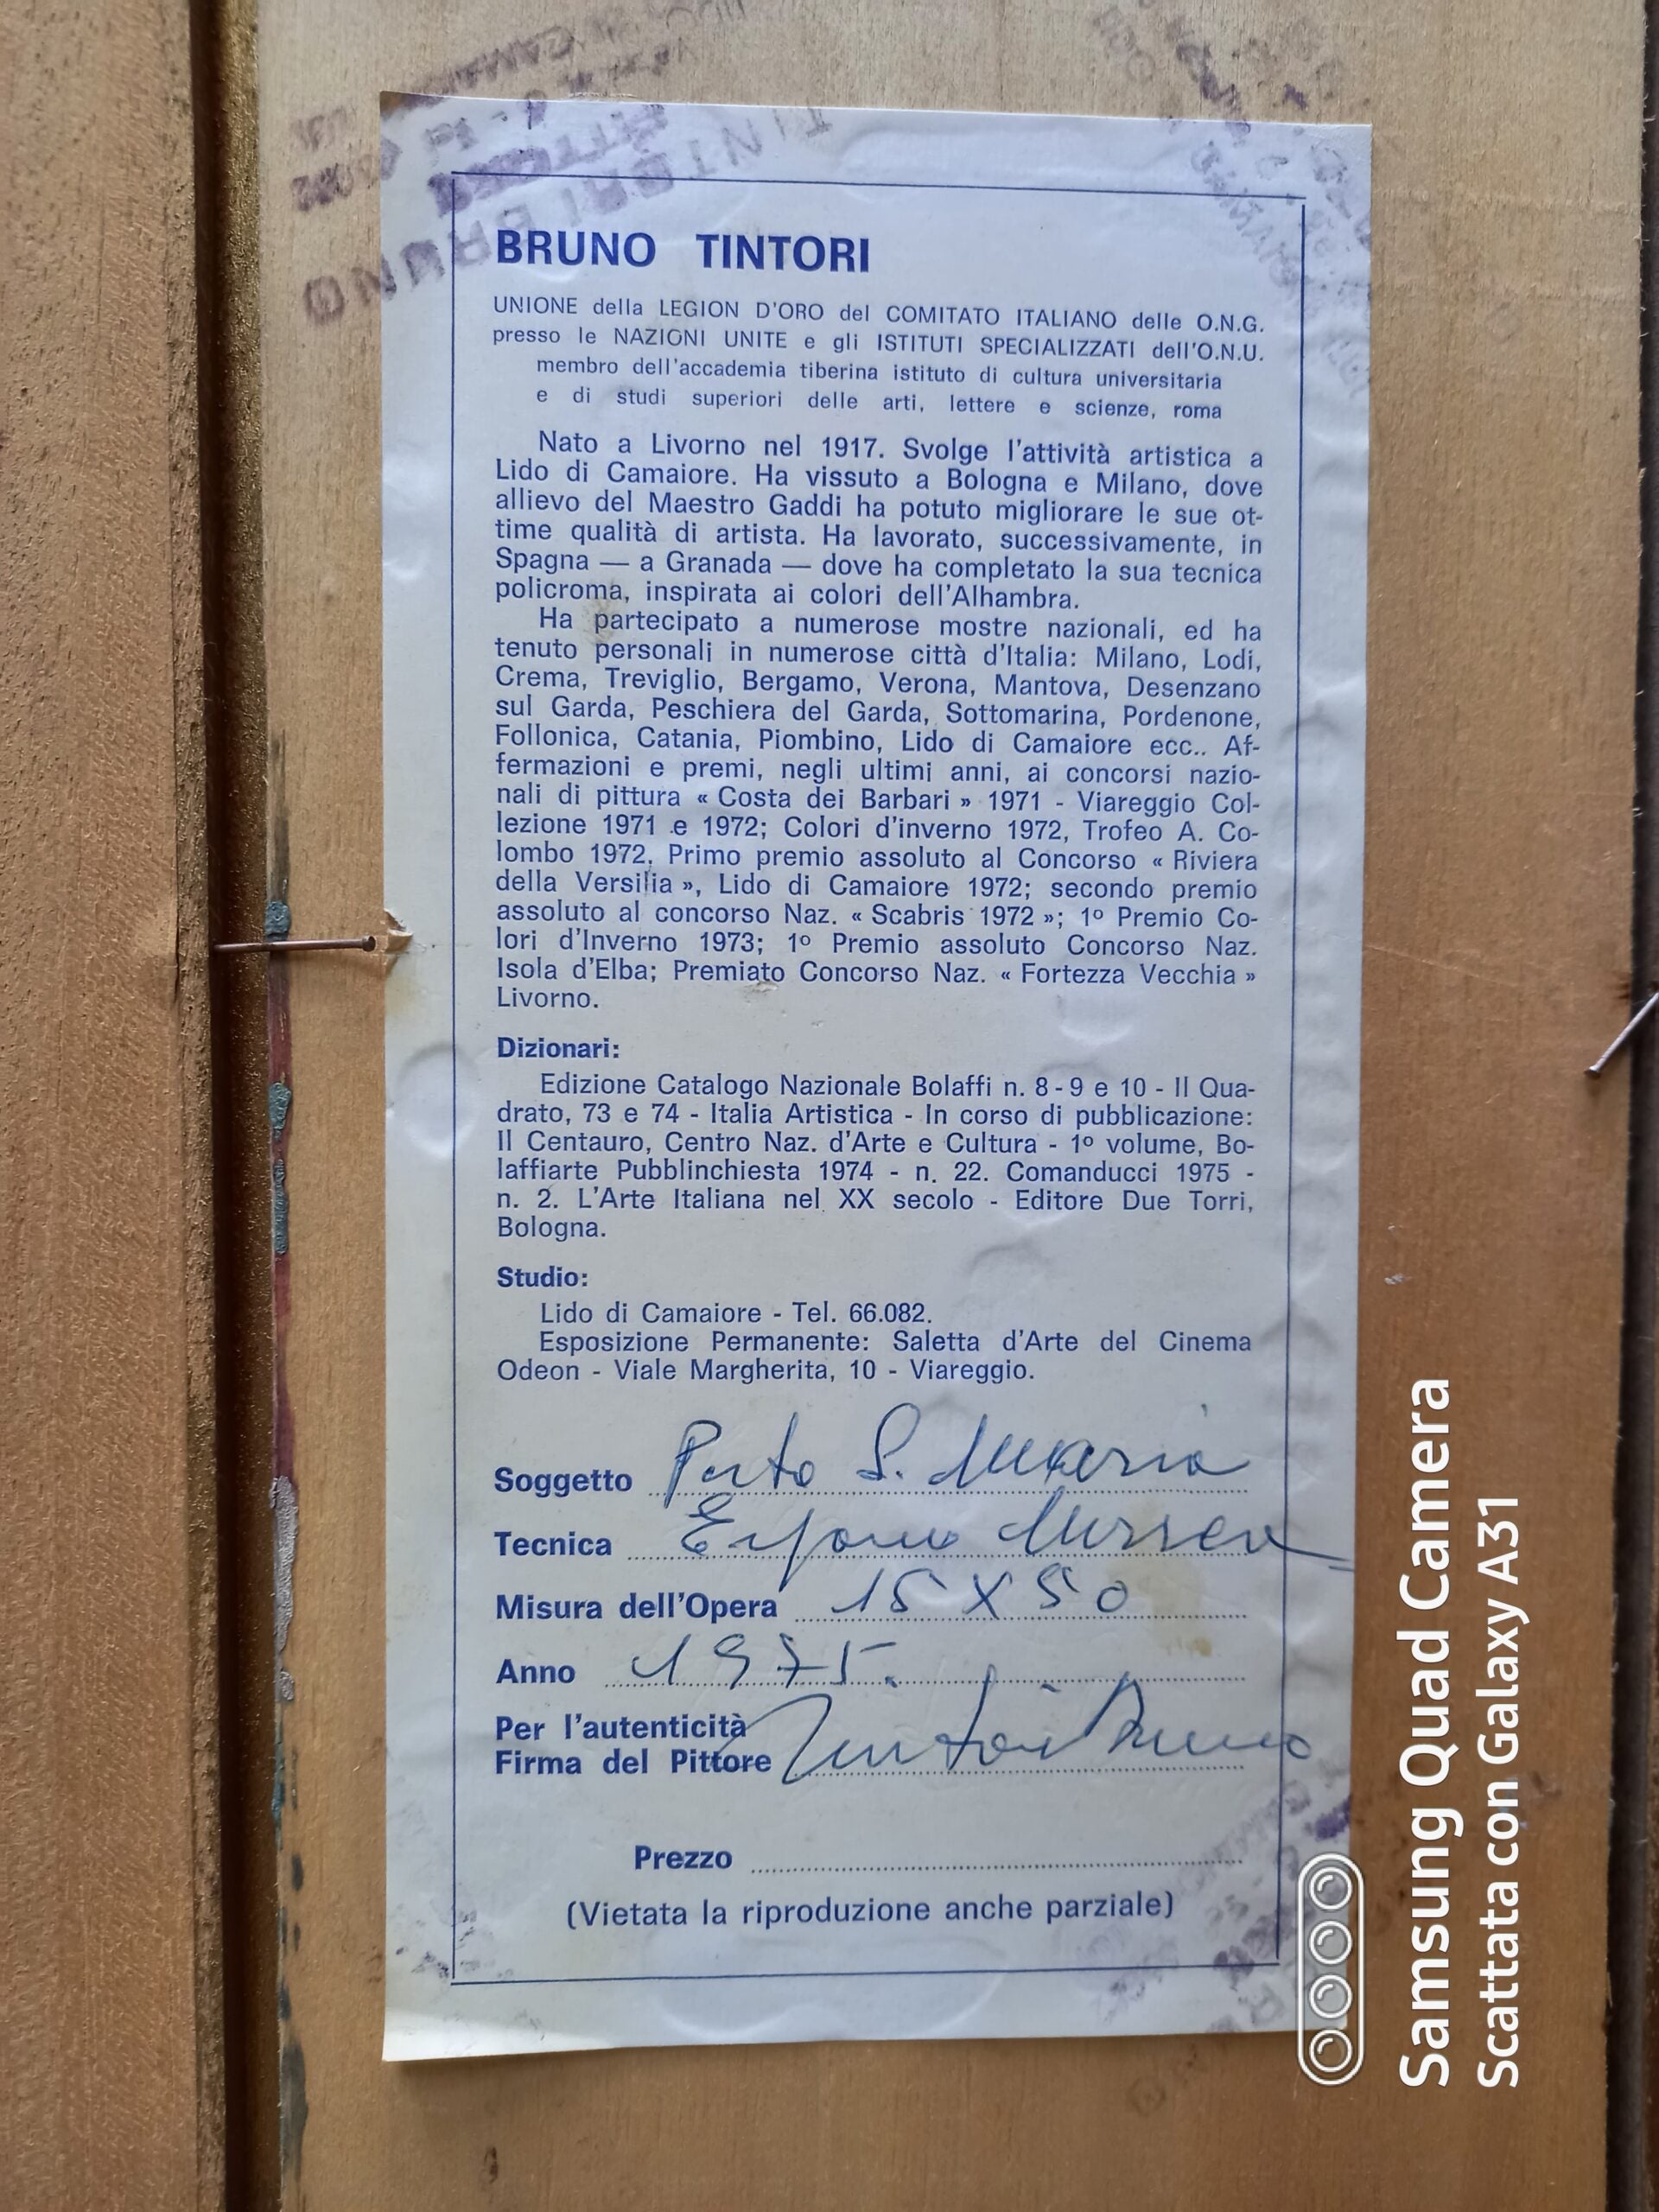 BRUNO TINTORI
UNIONE della LEGION D'ORO del COMITATO ITALIANO delle O.N.G.
presso le NAZIONI UNITE e gli ISTITUTI SPECIALIZZATI dell'O.N.U.
membro dell'accademia tiberina istituto di cultura universitaria
e di studi superiori delle arti, lettere e scienze, roma
Nato a Livorno nel 1917. Svolge l'attività artistica a
Lido di Camaiore. Ha vissuto a Bologna e Milano, dove
allievo del Maestro Gaddi ha potuto migliorare le sue ot-
time qualità di artista. Ha lavorato, successivamente, in
Spagna — a Granada — dove ha completato la sua tecnica
policroma, inspirata ai colori dell'Alhambra.
Ha partecipato a numerose mostre nazionali, ed ha
tenuto personali in numerose città d'Italia: Milano, Lodi,
Crema, Treviglio, Bergamo, Verona, Mantova, Desenzano
sul Garda, Peschiera del Garda, Sottomarina, Pordenone,
Follonica, Catania, Piombino, Lido di Camaiore ecc.. Af-
fermazioni e premi, negli ultimi anni, ai concorsi nazio-
nali di pittura « Costa dei Barbari » 1971 - Viareggio Col-
lezione 1971 e 1972; Colori d'inverno 1972, Trofeo A. Co-
lombo 1972, Primo premio assoluto al Concorso « Riviera
della Versilia », Lido di Camaiore 1972; secondo premio
assoluto al concorso Naz. « Scabris 1972 »; 1º Premio Co-
lori d'Inverno 1973; 1º Premio assoluto Concorso Naz.
Isola d'Elba; Premiato Concorso Naz. « Fortezza Vecchia »
Livorno.
Dizionari:
Edizione Catalogo Nazionale Bolaffi n. 8 - 9 e 10 - Il Qua-
drato, 73 e 74 - Italia Artistica - In corso di pubblicazione:
Il Centauro, Centro Naz. d'Arte e Cultura - 1º volume, Bo-
laffiarte Pubblinchiesta 1974 - n. 22. Comanducci 1975 -
n. 2. L'Arte Italiana nel XX secolo - Editore Due Torri,
Bologna.
Studio:
Lido di Camaiore - Tel. 66.082.
Esposizione Permanente: Saletta d'Arte del Cinema
Odeon - Viale Margherita, 10 - Viareggio.
Soggetto Porto S. Maria
Tecnica
Misura dell'Opera 15 X 50
Anno 1975.
Per l'autenticità
Firma del Pittore Tintori Bruno
Prezzo
(Vietata la riproduzione anche parziale)
TINTORI BRUNO
PITTORE
Samsung Quad Camera
Scattata con Galaxy A31